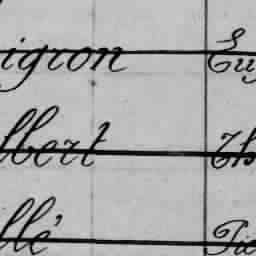 ignon Eug
lbert Th
llé Pie